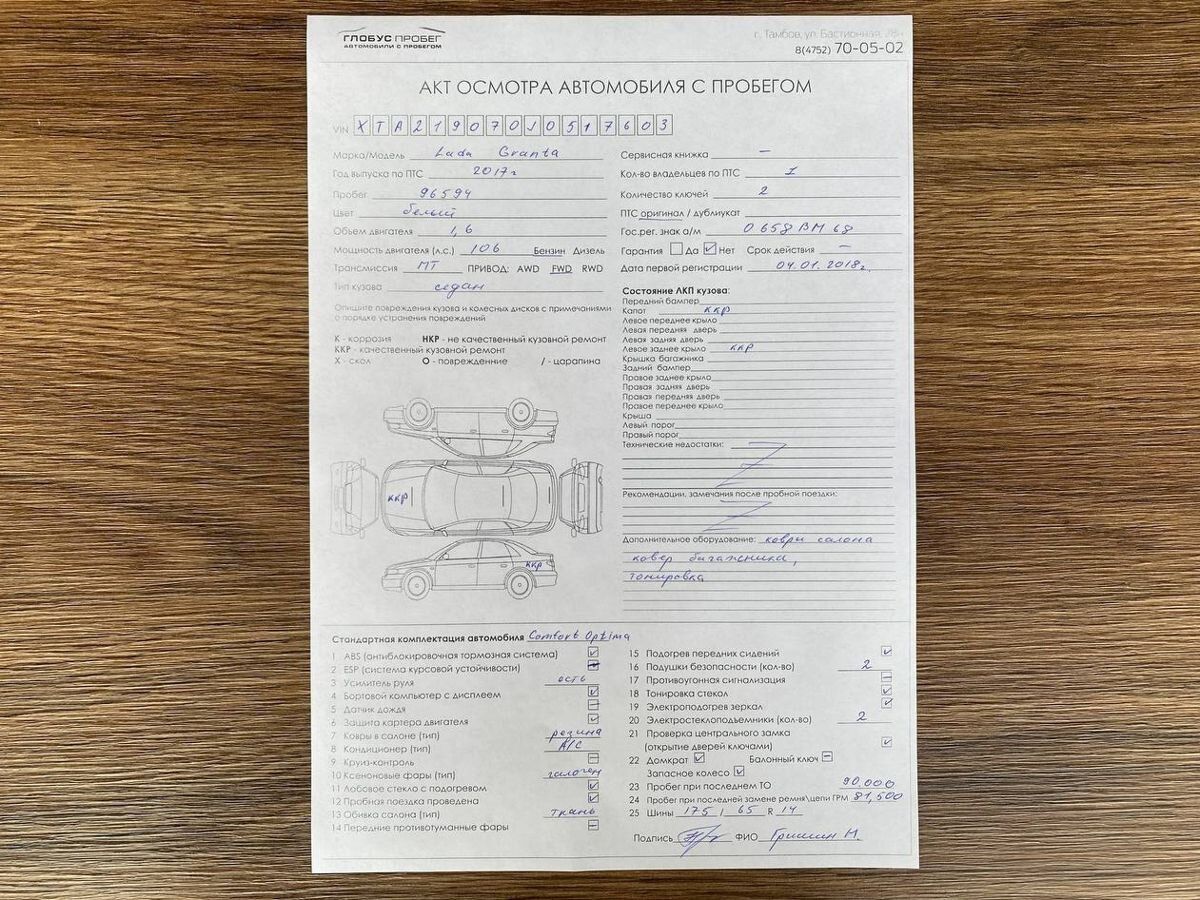 ГЛОБУС ПРОБЕГ
АВТОМОБИЛИ С ПРОБЕГОМ
г. Тамбов, ул. Бастионная, 28н
8(4752) 70-05-02
АКТ ОСМОТРА АВТОМОБИЛЯ С ПРОБЕГОМ
VIN XTA219070J0517603
Марка/Модель Lada Granta
Год выпуска по ПТС 2017г
Пробег 96594
Цвет белый
Объем двигателя 1,6
Мощность двигателя (л.с.) 106 Бензин Дизель
Трансмиссия МТ ПРИВОД: AWD FWD RWD
Тип кузова седан
Опишите повреждения кузова и колесных дисков с примечаниями
о порядке устранения повреждений
К - коррозия НКР - не качественный кузовной ремонт
ККР - качественный кузовной ремонт
Х - скол О - повреждениие / - царапина
ккр
ккр
Сервисная книжка —
Кол-во владельцев по ПТС 1
Количество ключей 2
ПТС оригинал / дублиукат
Гос.рег. знак а/м О 658 ВМ 68
Гарантия Да Нет Срок действия —
Дата первой регистрации 04.01.2018г.
Состояние ЛКП кузова:
Передний бампер
Капот ккр
Левое переднее крыло
Левая передняя дверь
Левая задняя дверь
Левое заднее крыло ккр
Крышка багажника
Задний бампер
Правое заднее крыло
Правая задняя дверь
Правая передняя дверь
Правое переднее крыло
Крыша
Левый порог
Правый порог
Технические недостатки:
Рекомендации, замечания после пробной поездки:
Дополнительное оборудование: коври салона
ковер багажника,
тонировка
Стандартная комплектация автомобиля Comfort Optima
1 ABS (антиблокировочная тормозная система)
2 ESP (система курсовой устойчивости)
3 Усилитель руля есть
4 Бортовой компьютер с дисплеем
5 Датчик дождя
6 Защита картера двигателя
7 Ковры в салоне (тип) резина
8 Кондиционер (тип) A/C
9 Круиз-контроль
10 Ксеноновые фары (тип) галоген
11 Лобовое стекло с подогревом
12 Пробная поездка проведена
13 Обивка салона (тип) ткань
14 Передние противотуманные фары
15 Подогрев передних сидений
16 Подушки безопасности (кол-во) 2
17 Противоугонная сигнализация
18 Тонировка стекол
19 Электроподогрев зеркал
20 Электростеклоподъемники (кол-во) 2
21 Проверка центрального замка
(открытие дверей ключами)
22 Домкрат Балонный ключ
Запасное колесо
23 Пробег при последнем ТО 90,000
24 Пробег при последней замене ремня\цепи ГРМ 81,500
25 Шины 175 / 65 R 14
Подпись ФИО Гришин Н.